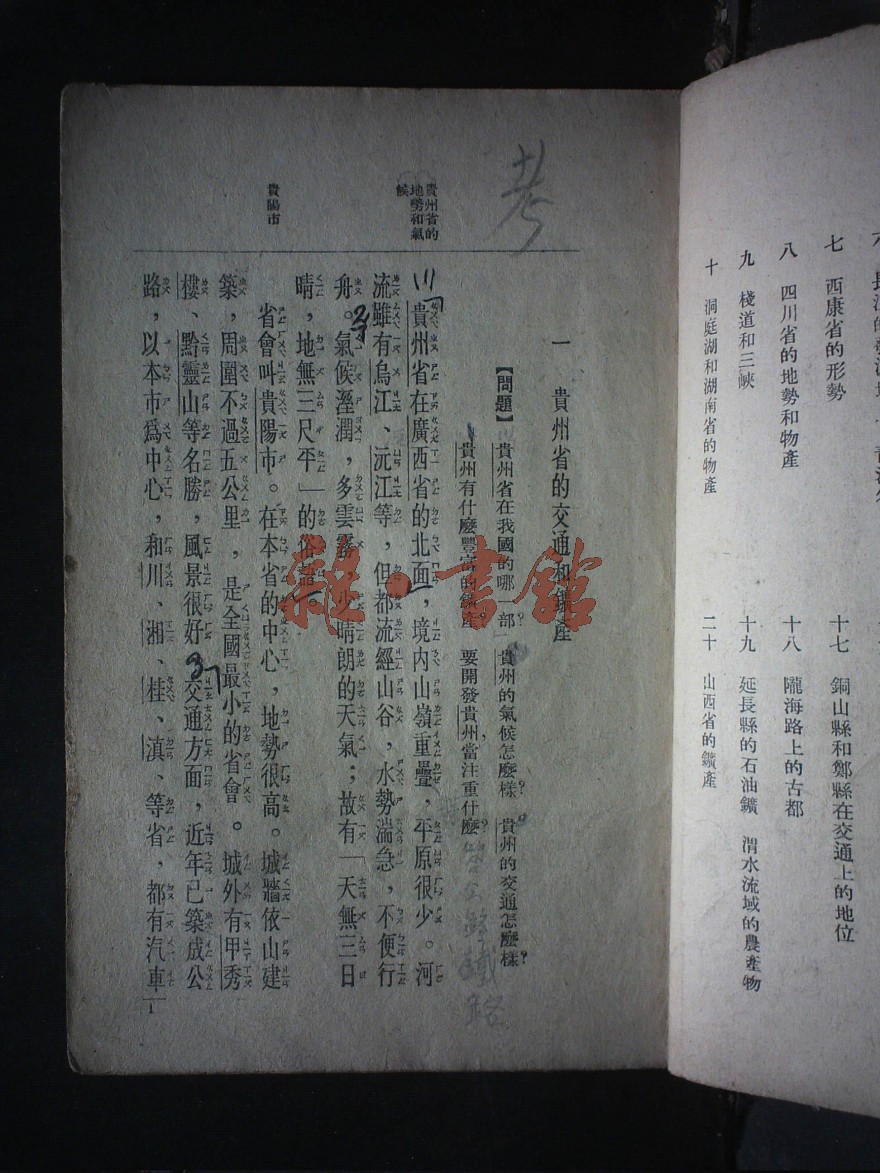 七 西康省的形勢
八 四川省的地勢和物產
九 棧道和三峽
十 洞庭湖和湖南省的物產
十七 銅山縣和鄭縣在交通上的地位
十八 隴海路上的古都
十九 延長縣的石油鑛 渭水流域的農產物
二十 山西省的鑛產
考
一 貴州省的交通和鑛產
【問題】貴州省在我國的哪一部？ 貴州的氣候怎麼樣？ 貴州的交通怎麼樣？
貴州有什麼豐富的鑛產？ 要開發貴州，當注重什麼？
鐵路
貴州省的
地勢和氣
候
貴州省在廣西省的北面，境內山嶺重疊，平原很少。河
流雖有烏江、沅江等，但都流經山谷，水勢湍急，不便行
舟。氣候溼潤，多雲霧，少晴朗的天氣；故有「天無三日
晴，地無三尺平」的俗語。
貴陽市
省會叫貴陽市。在本省的中心，地勢很高。城牆依山建
築，周圍不過五公里，是全國最小的省會。城外有甲秀
樓、黔靈山等名勝，風景很好。交通方面，近年已築成公
路，以本市爲中心，和川、湘、桂、滇、等省，都有汽車
1
雜·書館